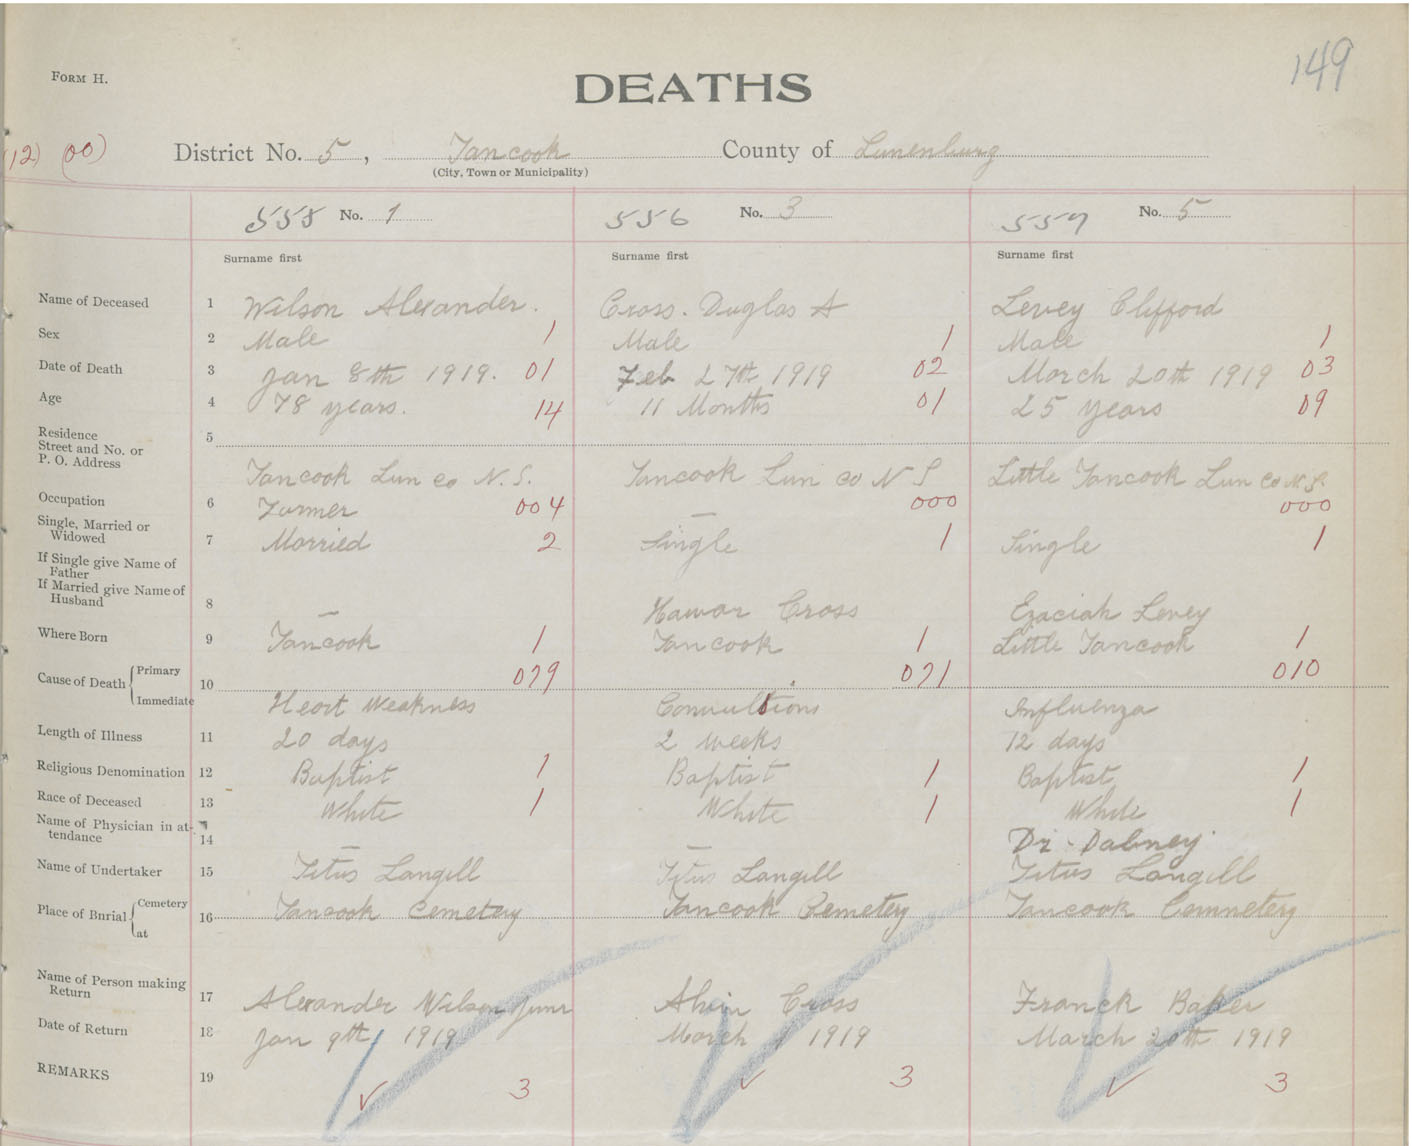 149
FORM H.
DEATHS
(12) (00) District No. 5, Tancook County of Lunenburg
(City, Town or Municipality)
555 No. 1 556 No. 3 557 No. 5
Surname first Surname first Surname first
Name of Deceased 1 Wilson Alexander. Cross. Duglas A Levey Clifford
Sex 2 Male 1 Male 1 Male 1
Date of Death 3 Jan 8th 1919. 01 Feb 27th 1919 02 March 20th 1919 03
Age 4 78 years. 14 11 Months 01 25 years 09
Residence
Street and No. or 5
P. O. Address
Tancook Lun co N. S. Tancook Lun co N S Little Tancook Lun co N.S.
Occupation 6 Furmer 004 — 000 000
Single, Married or
Widowed 7 Morried 2 Single 1 Single 1
If Single give Name of
Father
If Married give Name of
Husband 8 — Hawar Cross Ezaciah Levey
Where Born 9 Tancook 1 Tancook 1 Little Tancook 1
Cause of Death { Primary 10 079 071 010
Immediate Heart Weakness Convultions Influenza
Length of Illness 11 20 days 2 weeks 12 days
Religious Denomination 12 Baptist 1 Baptist 1 Baptist 1
Race of Deceased 13 White 1 White 1 White 1
Name of Physician in at-
tendance 14 — — Dr. Dabney
Name of Undertaker 15 Titus Langill Titus Langill Titus Langill
Place of Burial { Cemetery 16 Tancook Cemetery Tancook Cemetery Tancook Comnetery
at
Name of Person making
Return 17 Alexander Wilson Junr Alvin Cross Franck Baker
Date of Return 18 Jan 9th 1919 March 1 1919 March 20th 1919
REMARKS 19 ✓ 3 ✓ 3 ✓ 3